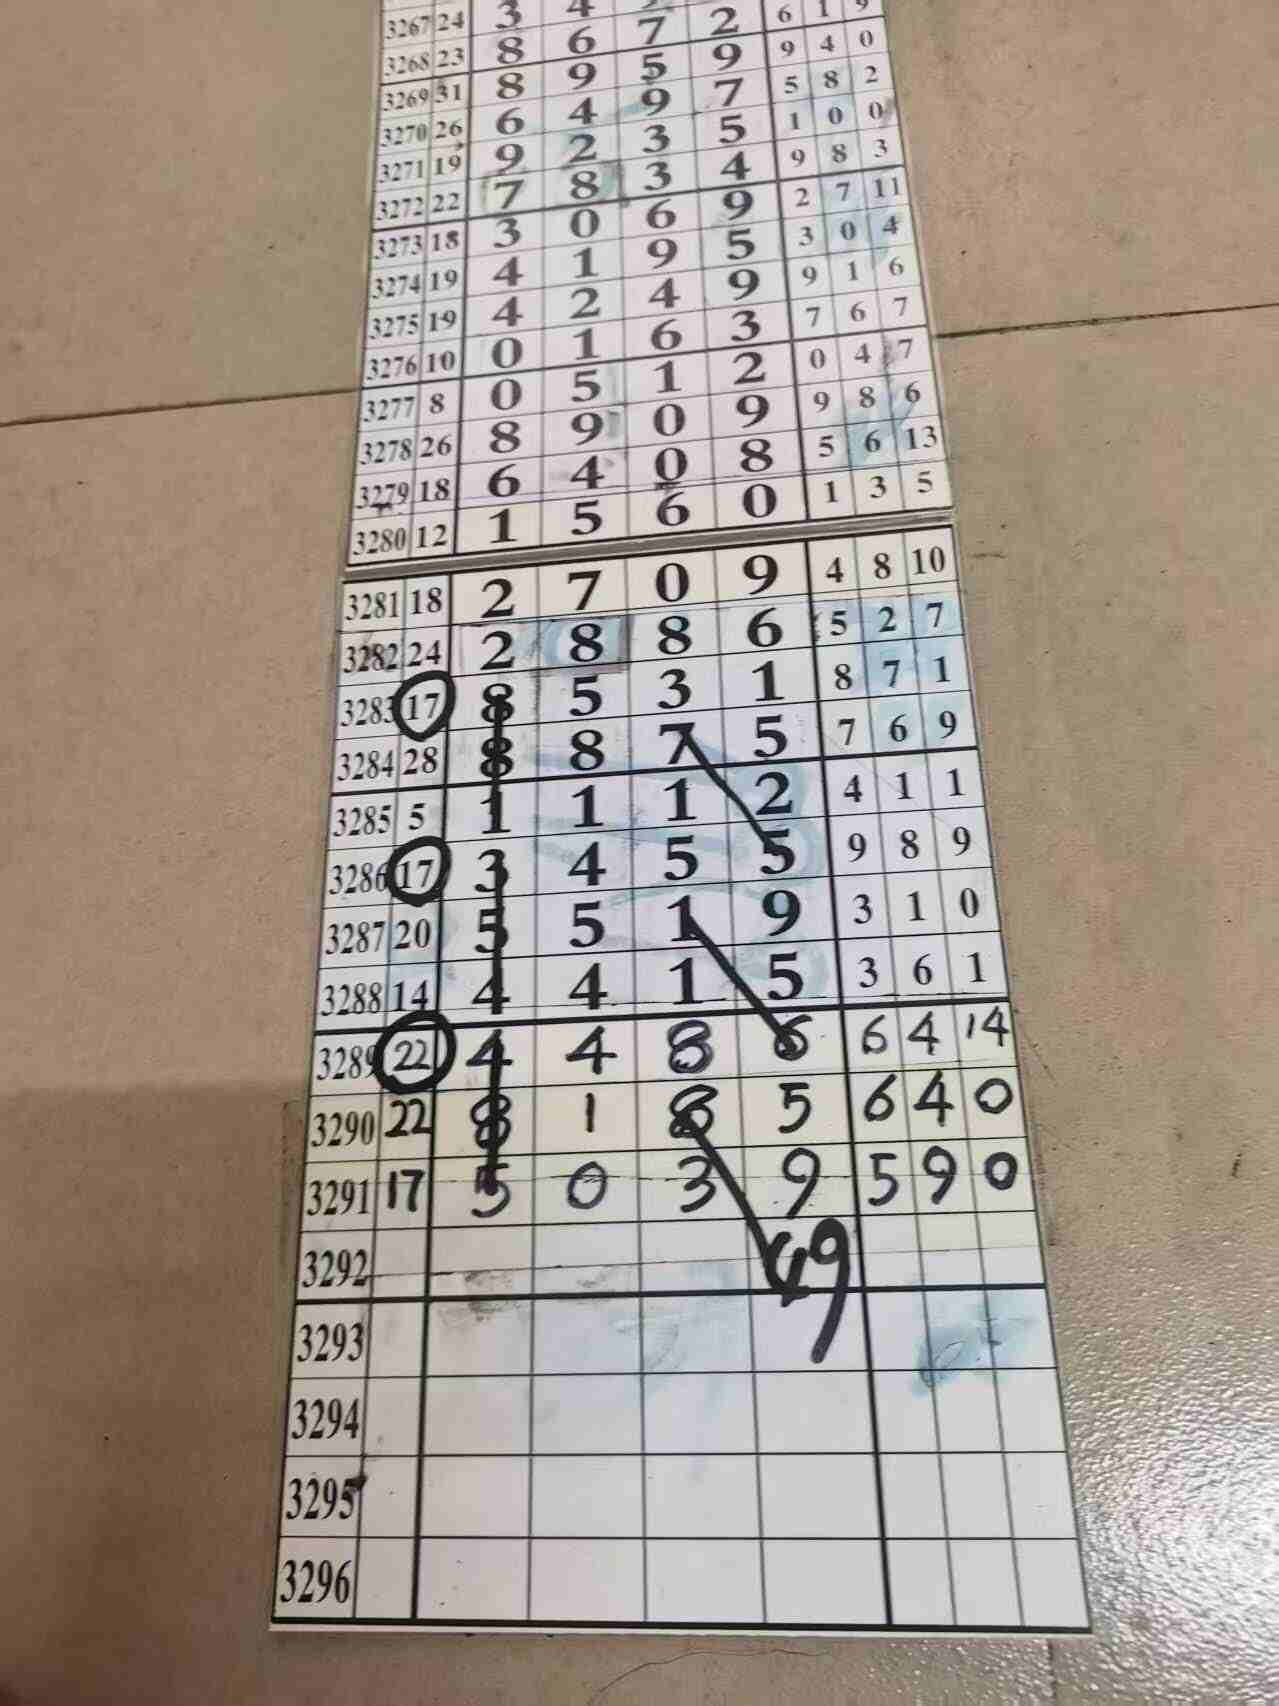 3267 24 3 4 2 6 1 9
3268 23 8 6 7 2 9 4 0
3269 31 8 9 5 9 5 8 2
3270 26 6 4 9 7 1 0 0
3271 19 9 2 3 5 9 8 3
3272 22 7 8 3 4 2 7 11
3273 18 3 0 6 9 3 0 4
3274 19 4 1 9 5 9 1 6
3275 19 4 2 4 9 7 6 7
3276 10 0 1 6 3 0 4 7
3277 8 0 5 1 2 9 8 6
3278 26 8 9 0 9 5 6 13
3279 18 6 4 0 8 1 3 5
3280 12 1 5 6 0
3281 18 2 7 0 9 4 8 10
3282 24 2 8 8 6 5 2 7
3283 17 8 5 3 1 8 7 1
3284 28 8 8 7 5 7 6 9
3285 5 1 1 1 2 4 1 1
3286 17 3 4 5 5 9 8 9
3287 20 5 5 1 9 3 1 0
3288 14 4 4 1 5 3 6 1
3289 22 4 4 8 6 6 4 14
3290 22 8 1 8 5 6 4 0
3291 17 5 0 3 9 5 9 0
3292 49
3293
3294
3295
3296